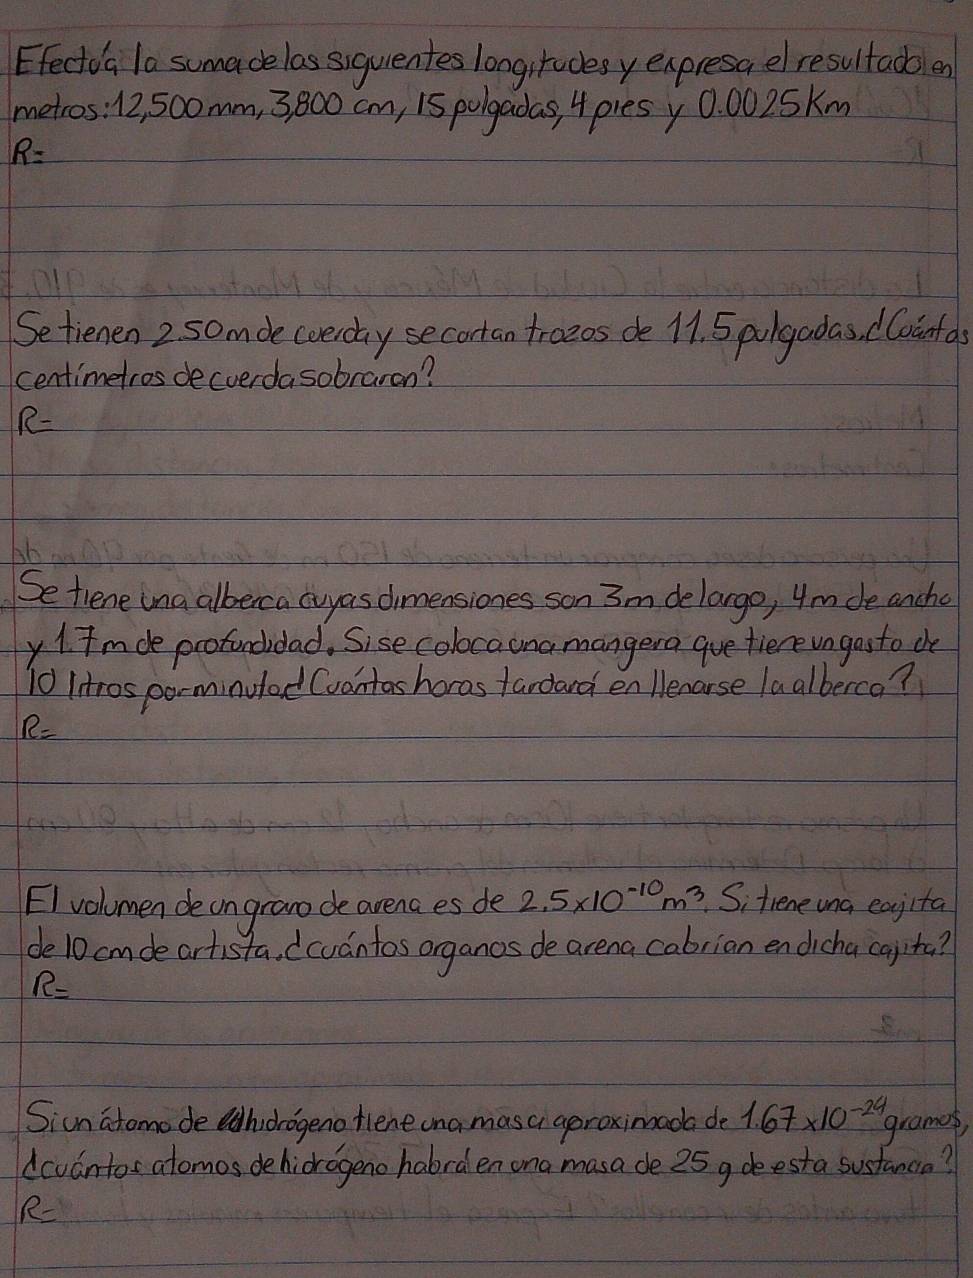 Efectúa la suma de las siguientes longitudes y expresa el resultado en
metros: 12,500 mm, 3,800 cm, 15 pulgadas, 4 pies y 0.0025 Km
R=
Se tienen 250 m de cuerda y se cortan trozos de 11.5 pulgadas. ¿Cuántos
centímetros de cuerda sobraron?
R=
Se tiene una alberca cuyas dimensiones son 3m de largo, 4m de ancho
y 1.7m de profundidad. Si se coloca una mangera que tiene un gasto de
10 litros por minuto ¿Cuántas horas tardará en llenarse la alberca?
R=
El volumen de un grano de arena es de 2.5x10⁻¹⁰ m³. Si tiene una cajita
de 10 cm de artista. ¿cuántos organos de arena cabrían en dicha cajita?
R=
Si un átomo de hidrógeno tiene una masa aproximada de 1.67x10⁻²⁴ gramos,
¿cuántos atomos de hidrógeno habrá en una masa de 25 g de esta sustancia?
R=